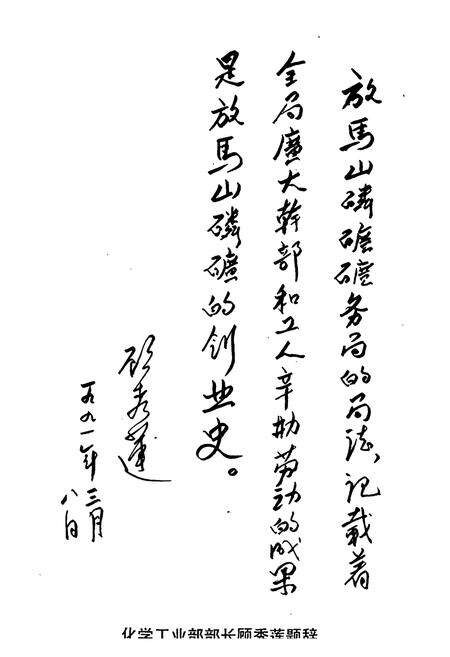 放馬山磷礦礦务局的局志、记载着
全局廣大幹部和工人辛勤劳动的成果
是放馬山磷礦的创业史。
顾秀蓮
一九九一年三月
八日
化学工业部部长顾秀莲题辞